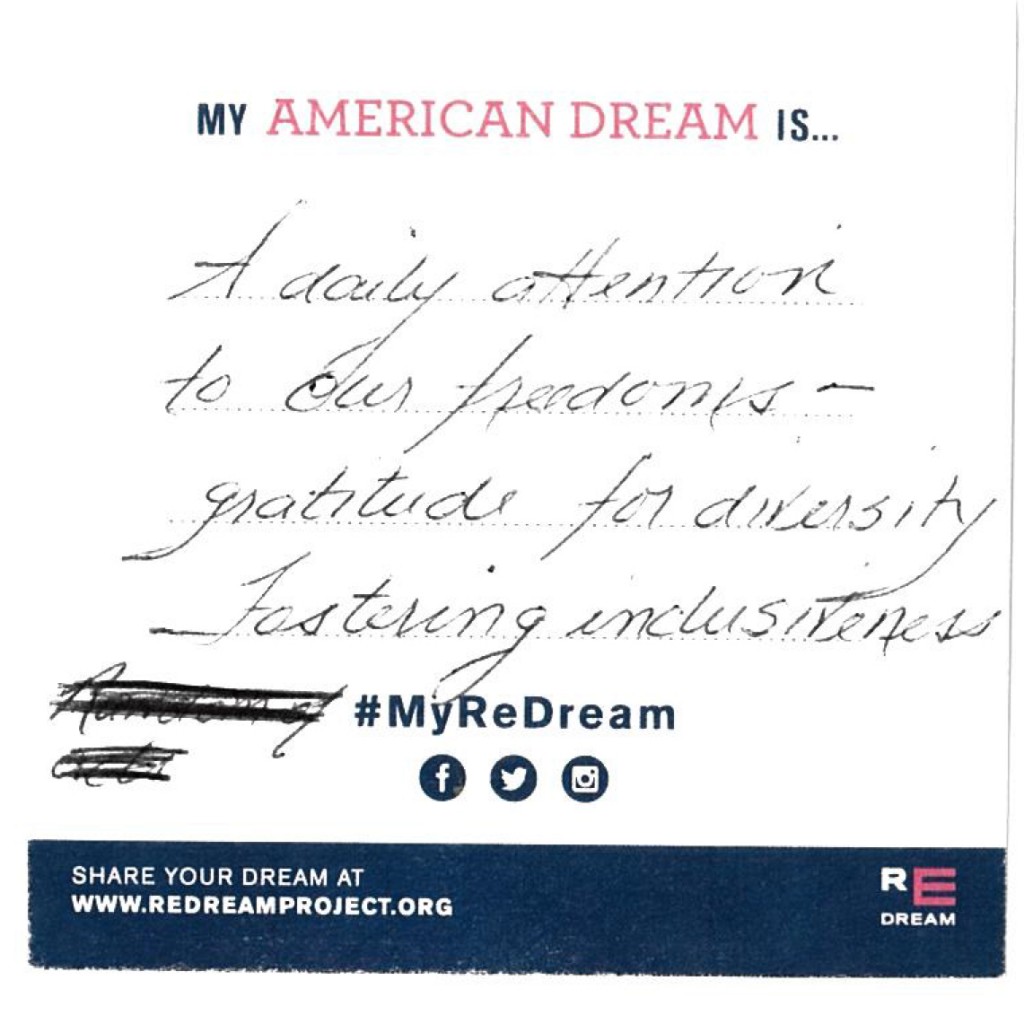 MY AMERICAN DREAM IS...
A daily attention
to our freedoms -
gratitude for diversity
Fostering inclusiveness
#MyReDream
SHARE YOUR DREAM AT
WWW.REDREAMPROJECT.ORG
RE
DREAM